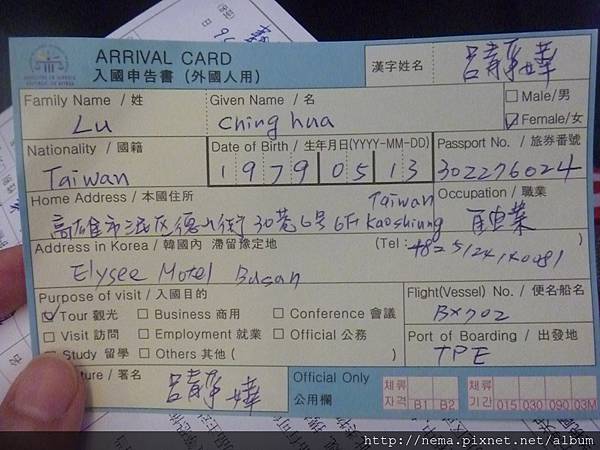 ARRIVAL CARD
入國申告書 (外國人用)
漢字姓名 呂靜嬅
Family Name / 姓 Given Name / 名 Male/男
Lu Ching hua Female/女
Nationality / 國籍 Date of Birth / 生年月日(YYYY-MM-DD) Passport No. / 旅券番號
Taiwan 1979 05 13 302276024
Home Address / 本國住所 Taiwan Occupation / 職業
高雄市 區德 街30巷6號6F Kaoshiung 業
Address in Korea / 韓國內 滯留豫定地 (Tel: )
Elysee Motel Busan
Purpose of visit / 入國目的 Flight(Vessel) No. / 便名船名
Tour 觀光 Business 商用 Conference 會議 BX702
Visit 訪問 Employment 就業 Official 公務 Port of Boarding / 出發地
Study 留學 Others 其他 ( ) TPE
ture / 署名 呂靜嬅
Official Only 公用欄
체류자격 B1 B2 체류기간 015 030 090 03M
http://nema.pixnet.net/album